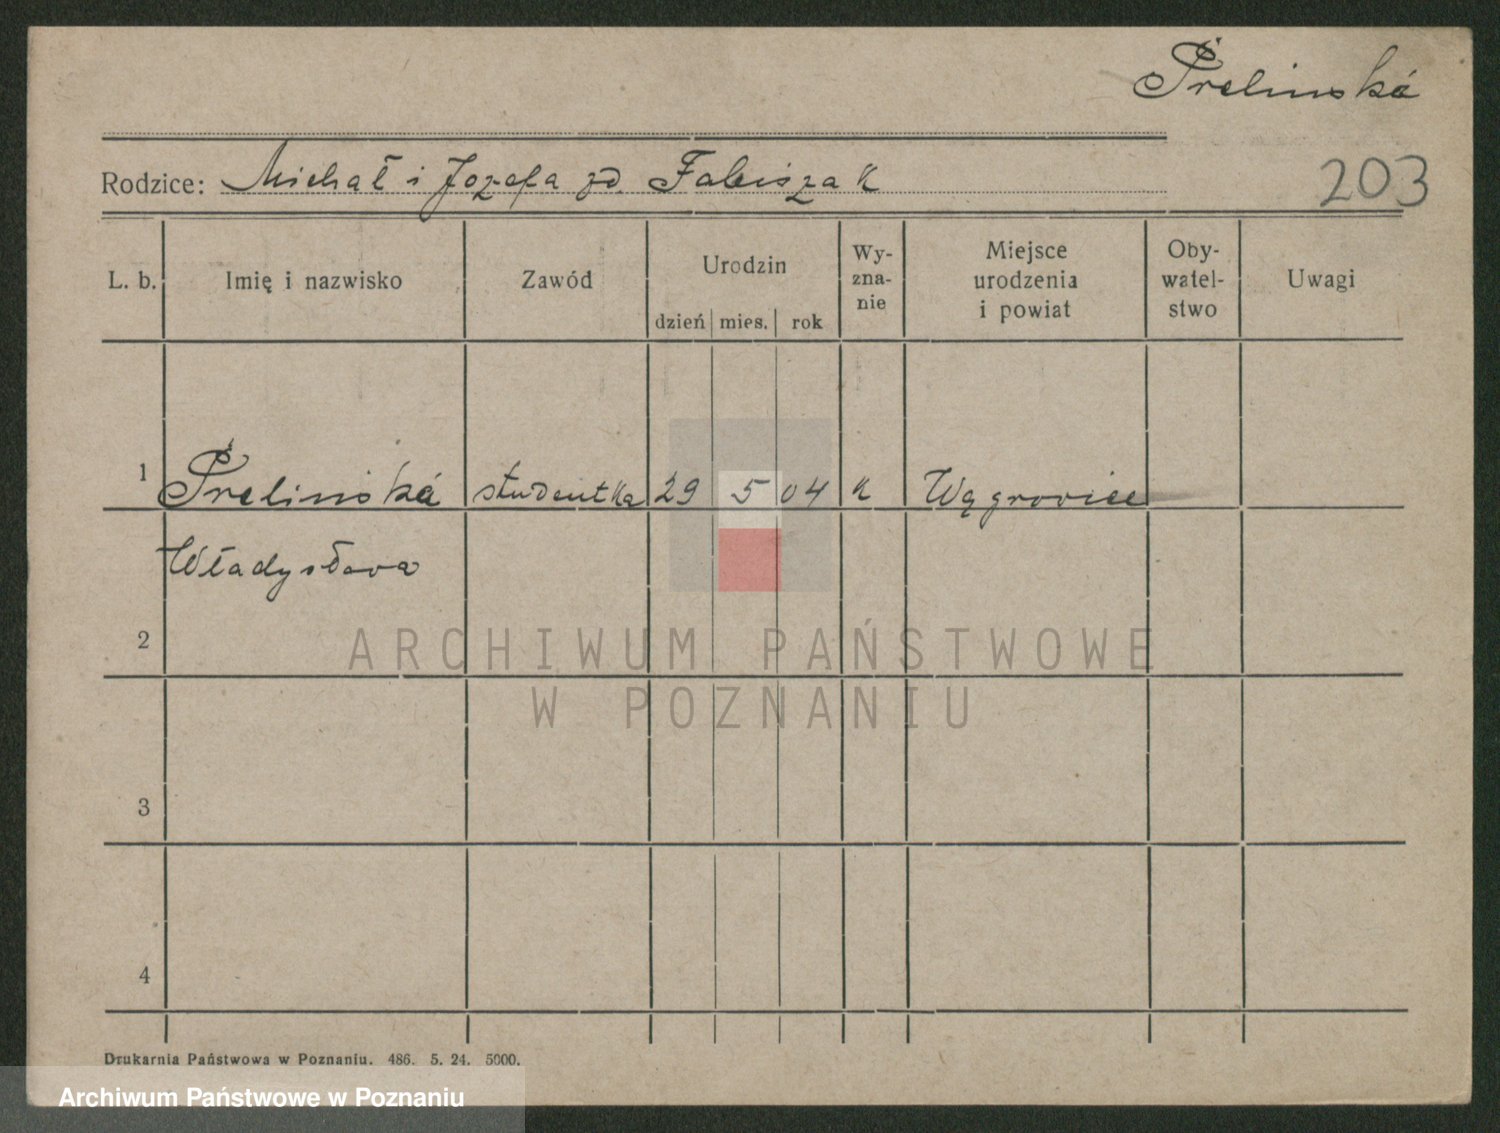 Śrelinská
Rodzice: Michał i Jozefa zd. Fabiszak
203
L. b. Imię i nazwisko Zawód Urodzin dzień mies. rok Wy-zna-nie Miejsce urodzenia i powiat Oby-watel-stwo Uwagi
1 Śrelinská studentka 29 5 04 k Wągrowiec
Władysława
2
ARCHIWUM PAŃSTWOWE
W POZNANIU
3
4
Drukarnia Państwowa w Poznaniu. 486. 5. 24. 5000.
Archiwum Państwowe w Poznaniu